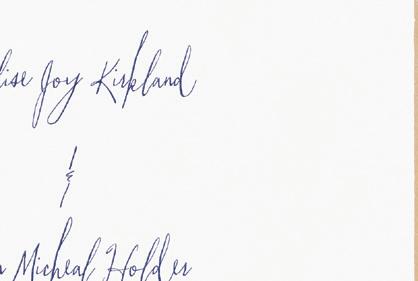 lise Joy Kirkland
&
n Micheal Holder